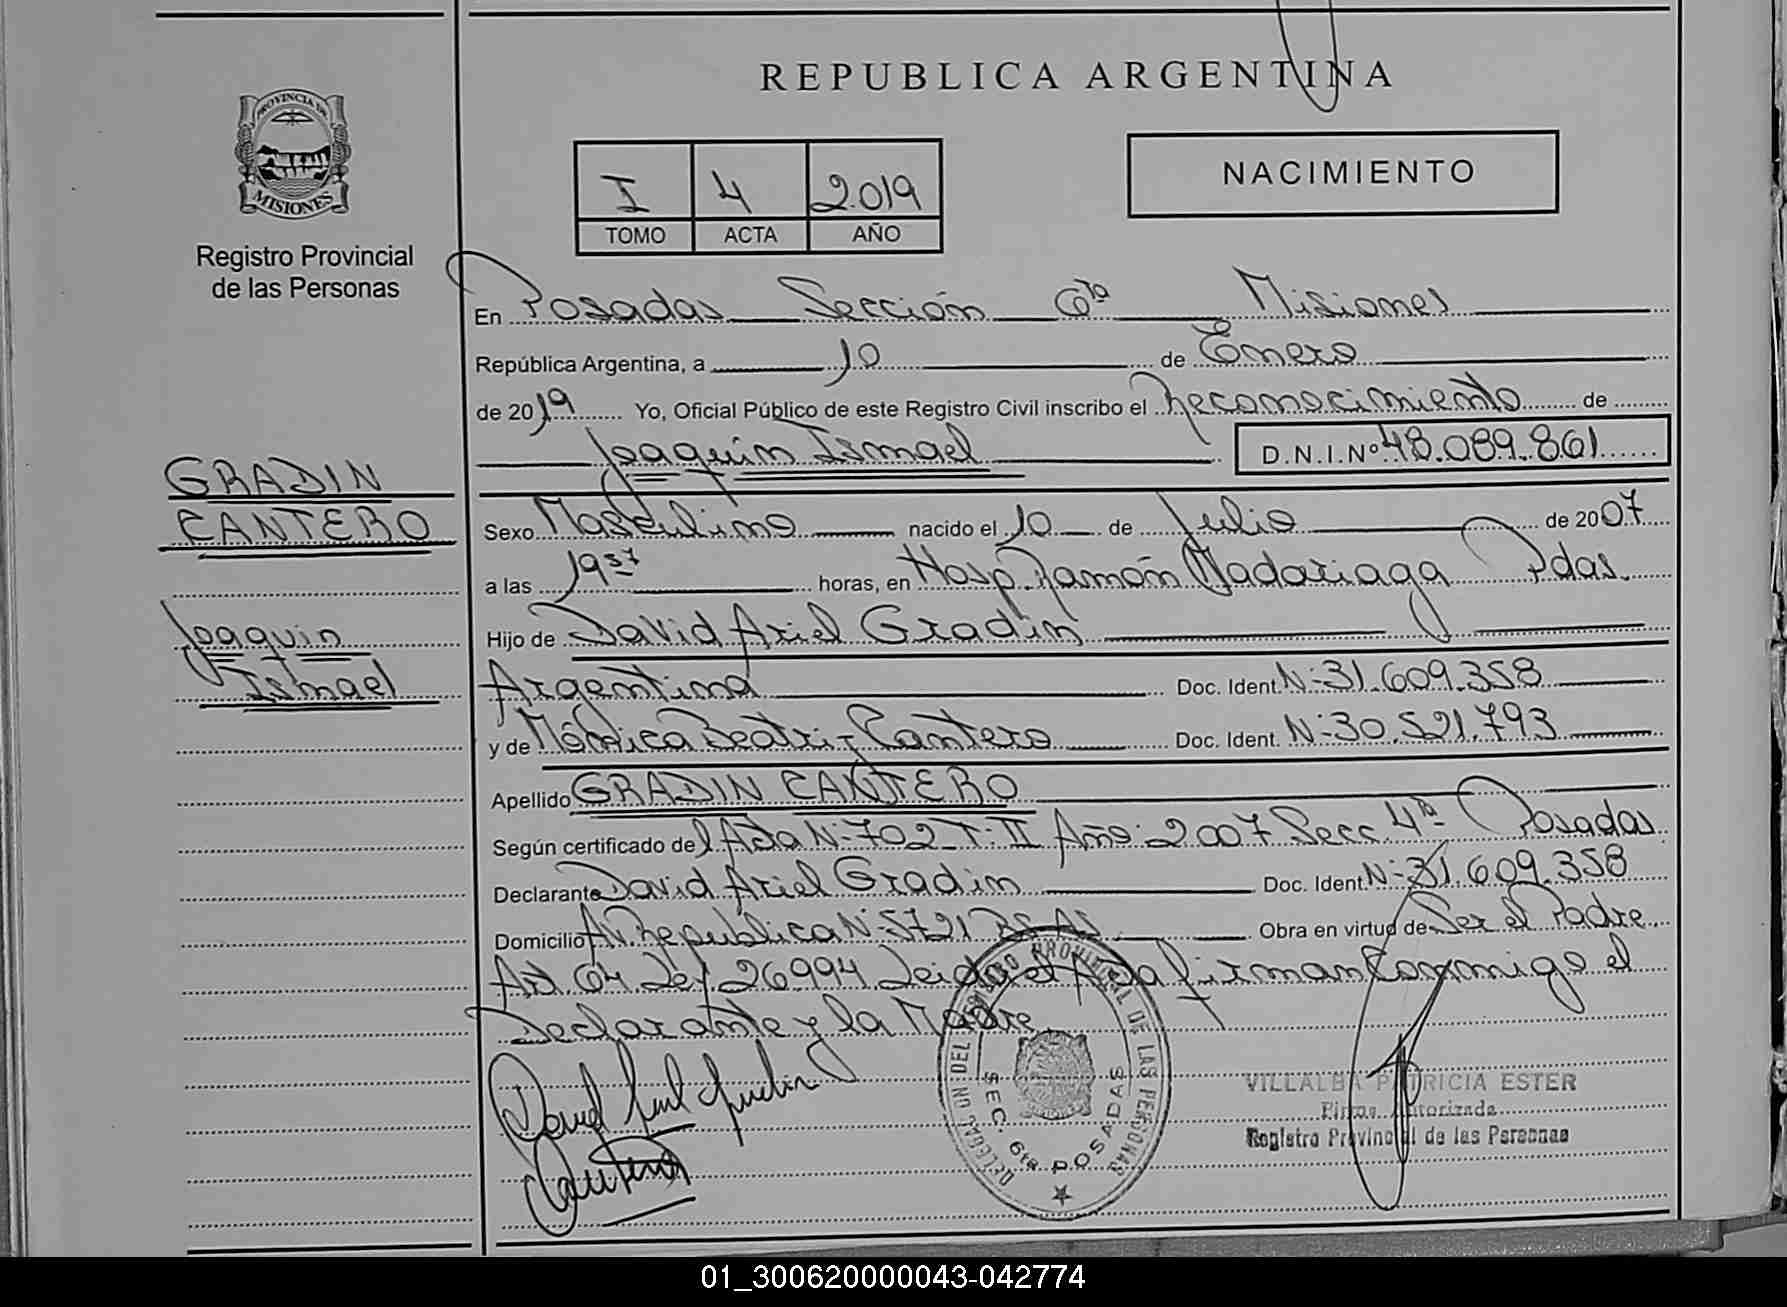 REPUBLICA ARGENTINA
PROVINCIA DE
MISIONES
Registro Provincial
de las Personas
I 4 2019
TOMO ACTA AÑO
NACIMIENTO
En Posadas Sección 6ta Misiones
República Argentina, a 10 de Enero
de 2019 Yo, Oficial Público de este Registro Civil inscribo el Reconocimiento de
Joaquin Ismael D.N.I.Nº 48.089.861
GRADIN
CANTERO
Joaquin
Ismael
Sexo Masculino nacido el 10 de Julio de 2007
a las 1957 horas, en Hosp. Ramón Madariaga Pdas.
Hijo de David Ariel Gradin
Argentina Doc. Ident. N:31.609.358
y de Mónica Beatriz Cantero Doc. Ident. N:30.521.793
Apellido GRADIN CANTERO
Según certificado del Acta N:702 T:II Año:2007 Secc 4ta Posadas
Declarante David Ariel Gradin Doc. Ident. N:31.609.358
Domicilio Av. Republica N:5721 BS AS Obra en virtud de Ser el Padre
Art. 64 Ley 26994 Leida el Acta firman Conmigo el
Declarante y la Madre
David Ariel Gradin
Cantero
DELEGACION DEL REGISTRO PROVINCIAL DE LAS PERSONAS
SEC. 6ta POSADAS
VILLALBA PATRICIA ESTER
Firma Autorizada
Registro Provincial de las Personas
01_300620000043-042774